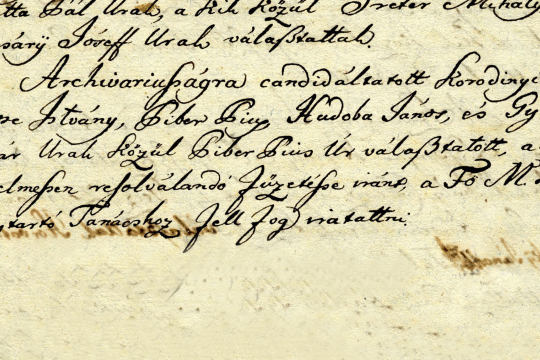 Pál Urak, a kik közűl Preter Mihály
Jóseff Urak válaßtattak.
Archivariusságra candidáltatott Korodinyi
Istvány, Piber Pius, Kudoba János, és Gy
Urak közűl Piber Pius Úr válaßtatott, a
resolválandó fizetésse iránt, a Fő M.
tartó Tanácshoz fell fog iratattni.